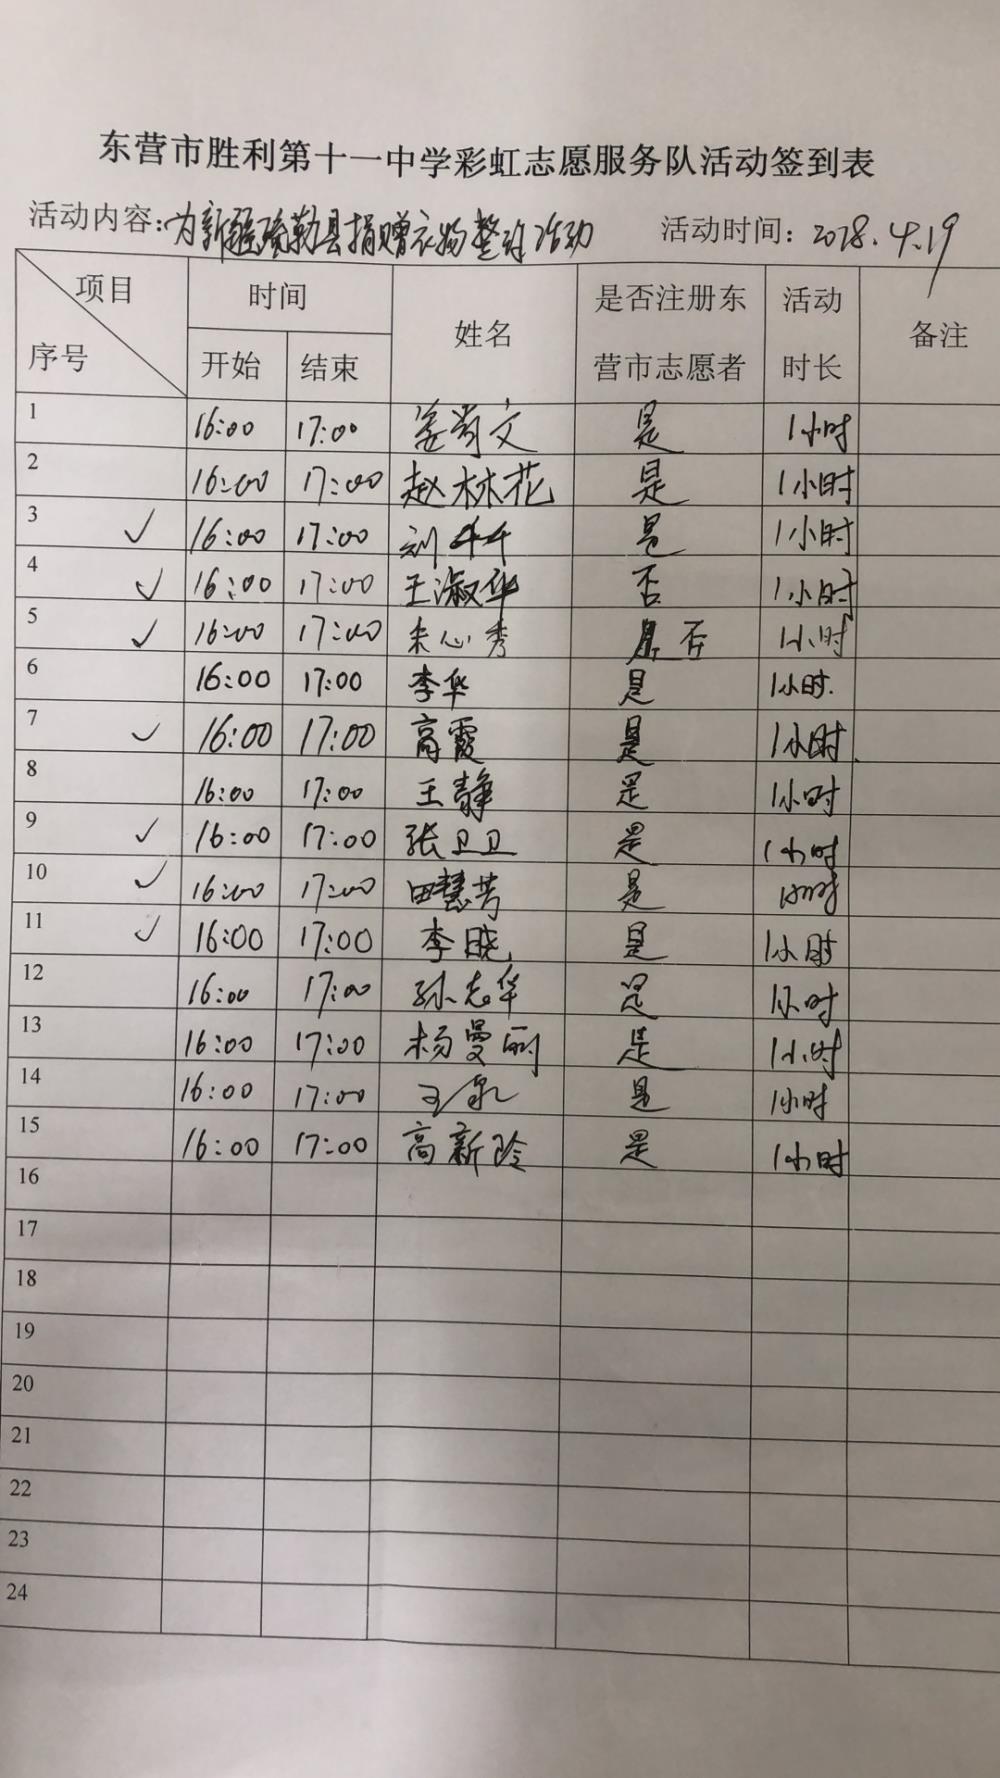 东营市胜利第十一中学彩虹志愿服务队活动签到表
活动内容:为新疆疏勒县捐赠衣物整理活动 活动时间:2018.4.19
项目 序号 时间 开始 结束 姓名 是否注册东营市志愿者 活动时长 备注
1 16:00 17:00 姜尚文 是 1小时
2 16:00 17:00 赵林花 是 1小时
3 ✓ 16:00 17:00 刘 是 1小时
4 ✓ 16:00 17:00 王淑华 否 1小时
5 ✓ 16:00 17:00 朱心秀 否 1小时
6 16:00 17:00 李华 是 1小时.
7 ✓ 16:00 17:00 高霞 是 1小时.
8 16:00 17:00 王静 是 1小时
9 ✓ 16:00 17:00 张卫卫 是 1小时
10 ✓ 16:00 17:00 田慧芳 是 1小时
11 ✓ 16:00 17:00 李晓 是 1小时
12 16:00 17:00 孙志华 是 1小时
13 16:00 17:00 杨曼丽 是 1小时
14 16:00 17:00 王泉 是 1小时
15 16:00 17:00 高新玲 是 1小时
16
17
18
19
20
21
22
23
24